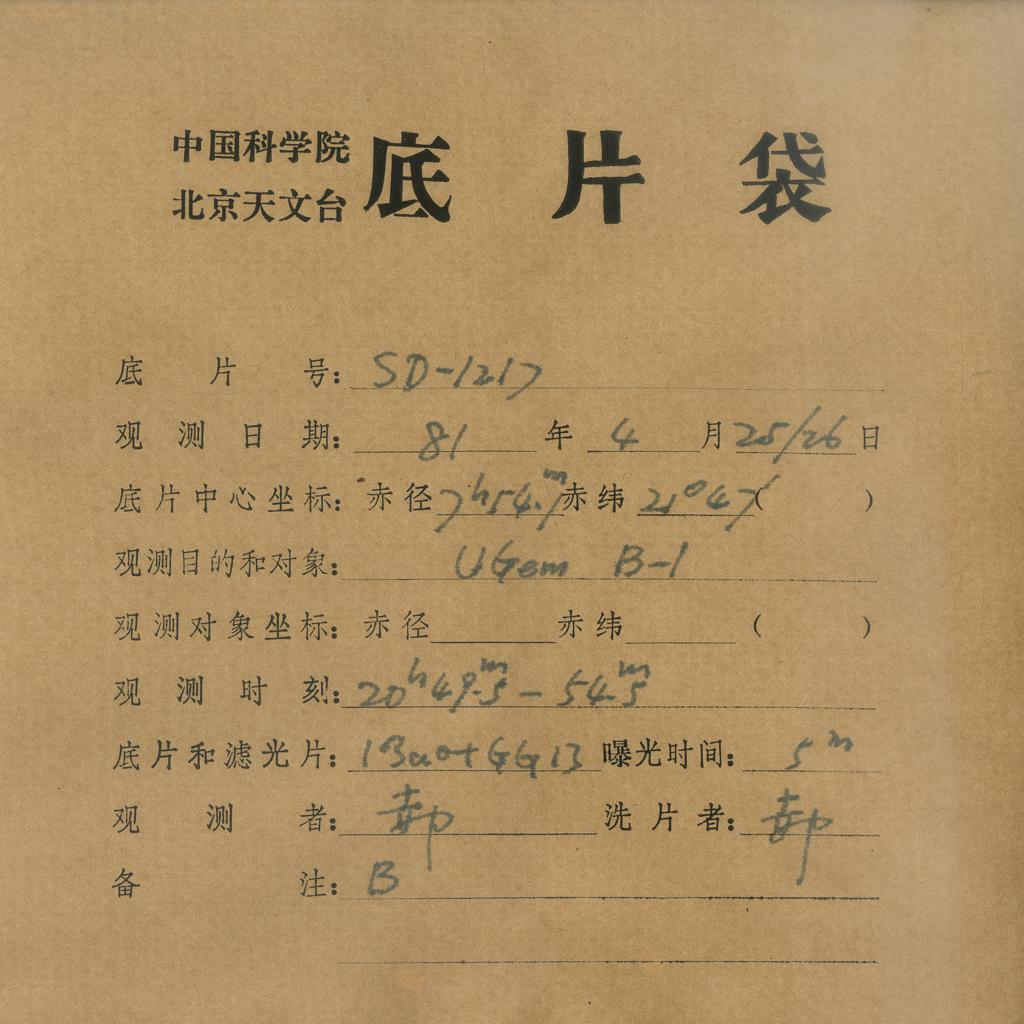 中国科学院
北京天文台
底片袋
底片号: SD-1217
观测日期: 81年4月25/26日
底片中心坐标: 赤径7h54.m 赤纬21°47′( )
观测目的和对象: UGem B-1
观测对象坐标: 赤径 赤纬 ( )
观测时刻: 20h49m.5-54m.5
底片和滤光片: 1Bao+GG13 曝光时间: 5m
观测者: 郝 洗片者: 郝
备注: B